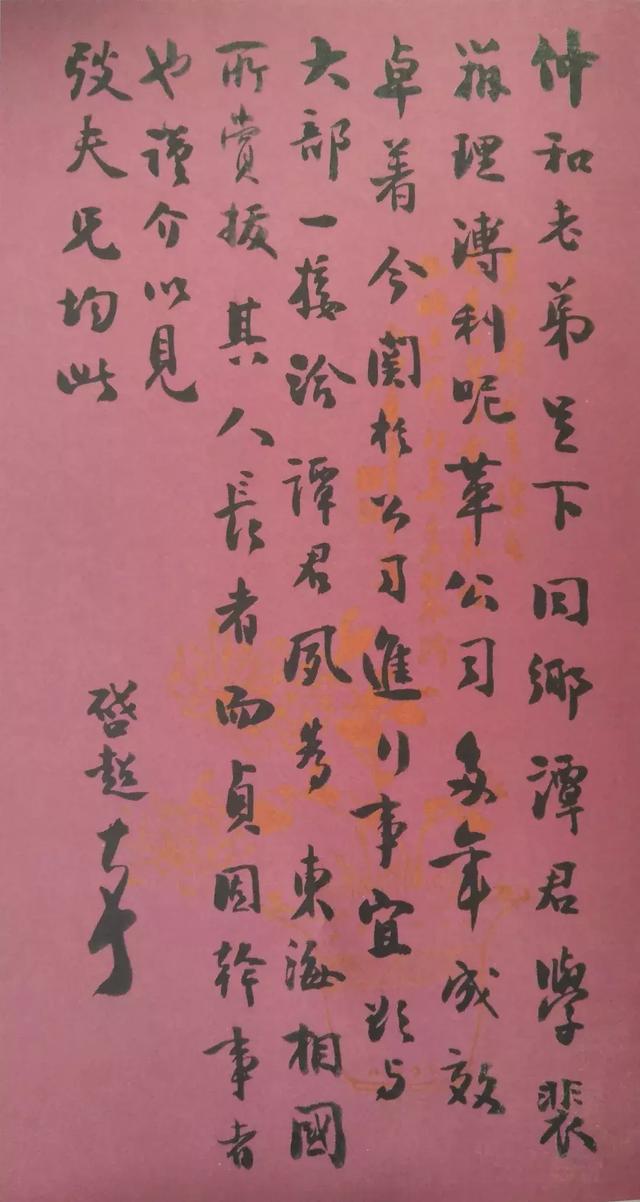 仲和老弟足下同鄉譚君學裴
辦理溥利呢革公司多年成效
卓着今関於公司進行事宜欲与
大部一接洽譚君夙為東海相國
所賞拔其人長者而貞固幹事者
也謹介以見
弢夫兄均此
啓超